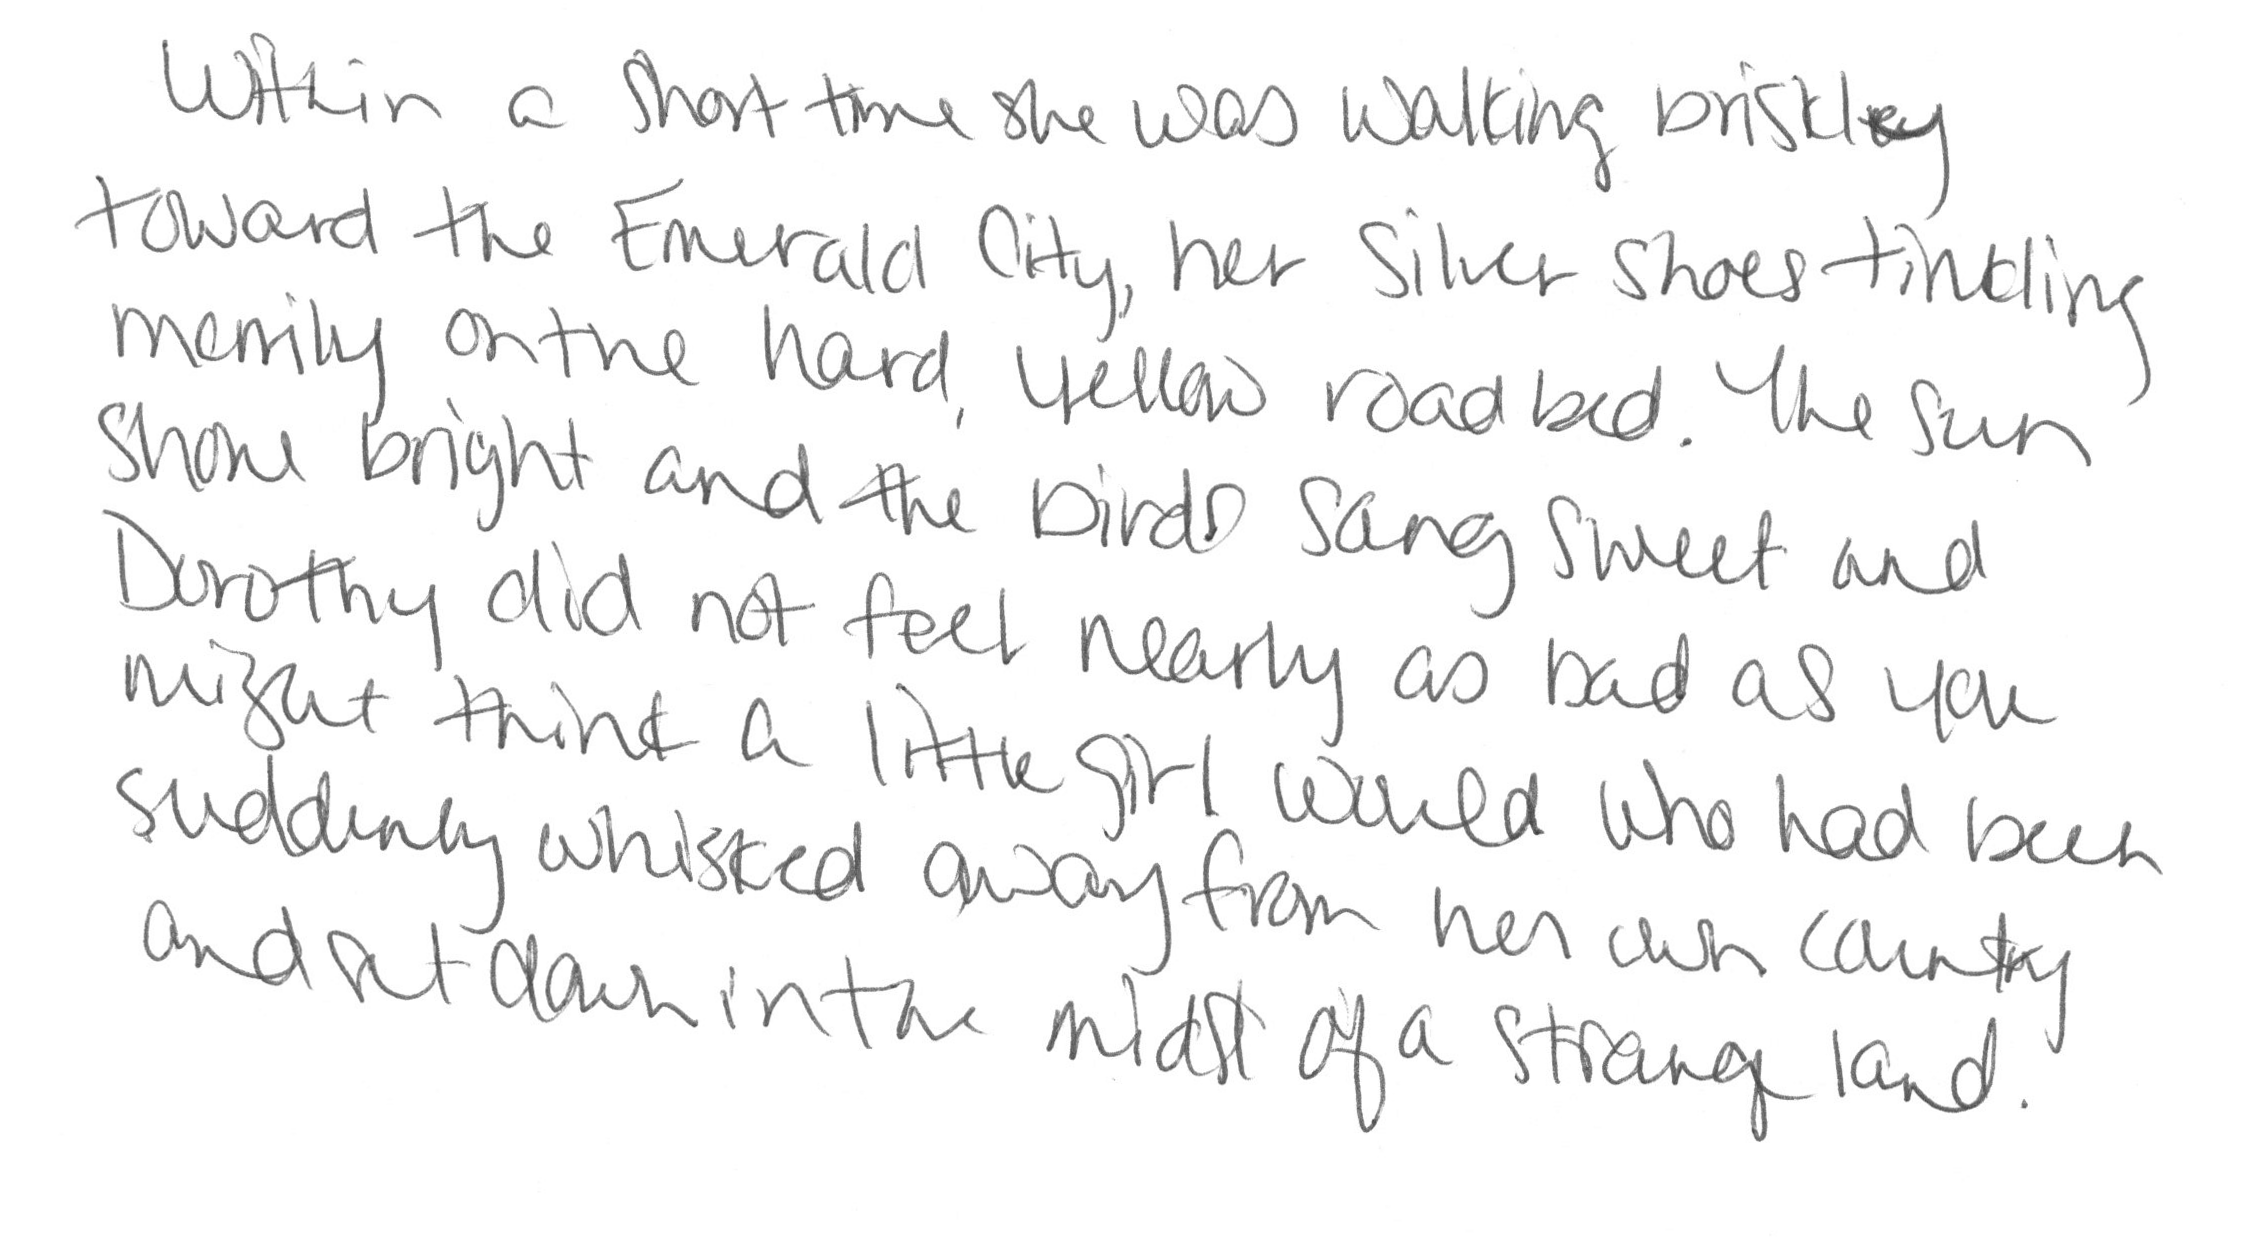 Within a short time she was walking briskley
toward the Emerald City, her Silver Shoes tinkling
merrily on the hard, yellow roadbed. The sun
shone bright and the birds sang sweet and
Dorothy did not feel nearly as bad as you
might think a little girl would who had been
suddenly whisked away from her own country
and set down in the midst of a strange land.